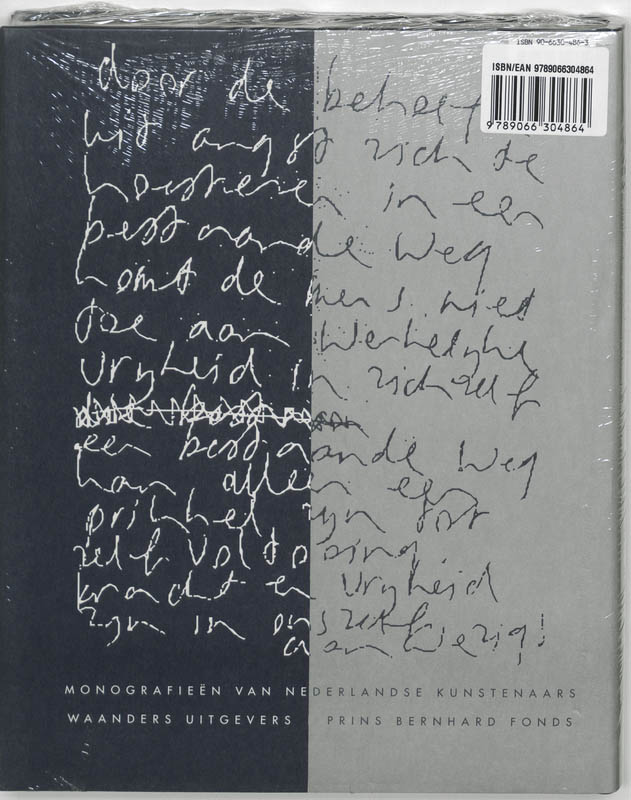 ISBN 90-6630-486-3
ISBN/EAN 9789066304864
9 789066 304864
door de behoef
uit angst zich te
koesteren in een
bestaande weg
komt de mens niet
toe aan werkelyke
vryheid in zichzelf
een bestaande weg
kan alleen een
prikkel zyn tot
zelf voltooiing
kracht en vryheid
zyn in onszelf
aanwezig!
MONOGRAFIEËN VAN NEDERLANDSE KUNSTENAARS
WAANDERS UITGEVERS PRINS BERNHARD FONDS